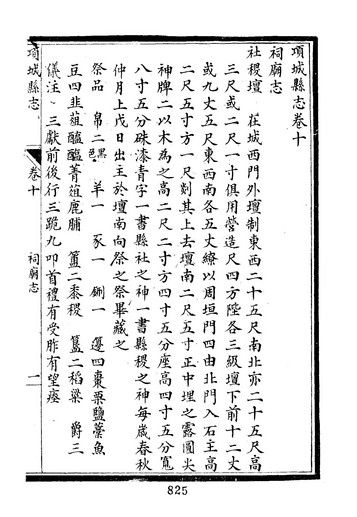 項城縣志卷十
祠廟志
社稷壇　在城西門外壇制東西二十五尺南北亦二十五尺高
三尺或二尺一寸俱用營造尺四方陛各三級壇下前十二丈
或九丈五尺東西南各五丈繚以周垣門四由北門入石主高
二尺五寸方一尺剡其上去壇南二尺五寸正中埋之露圓尖
神牌二以木為之高二尺二寸方四寸五分座高四寸五分寬
八寸五分硃漆青字一書縣社之神一書縣稷之神每歲春秋
仲月上戊日出主於壇南向祭之祭畢藏之
祭品　帛二黑色　羊一　豕一　鉶一　籩四棗栗鹽藁魚
豆四韭菹醯醢菁菹鹿脯　簠二黍稷　簋二稻粱　爵三
儀注　三獻前後行三跪九叩首禮有受胙有望瘞
項城縣志
卷十
祠廟志
一
825